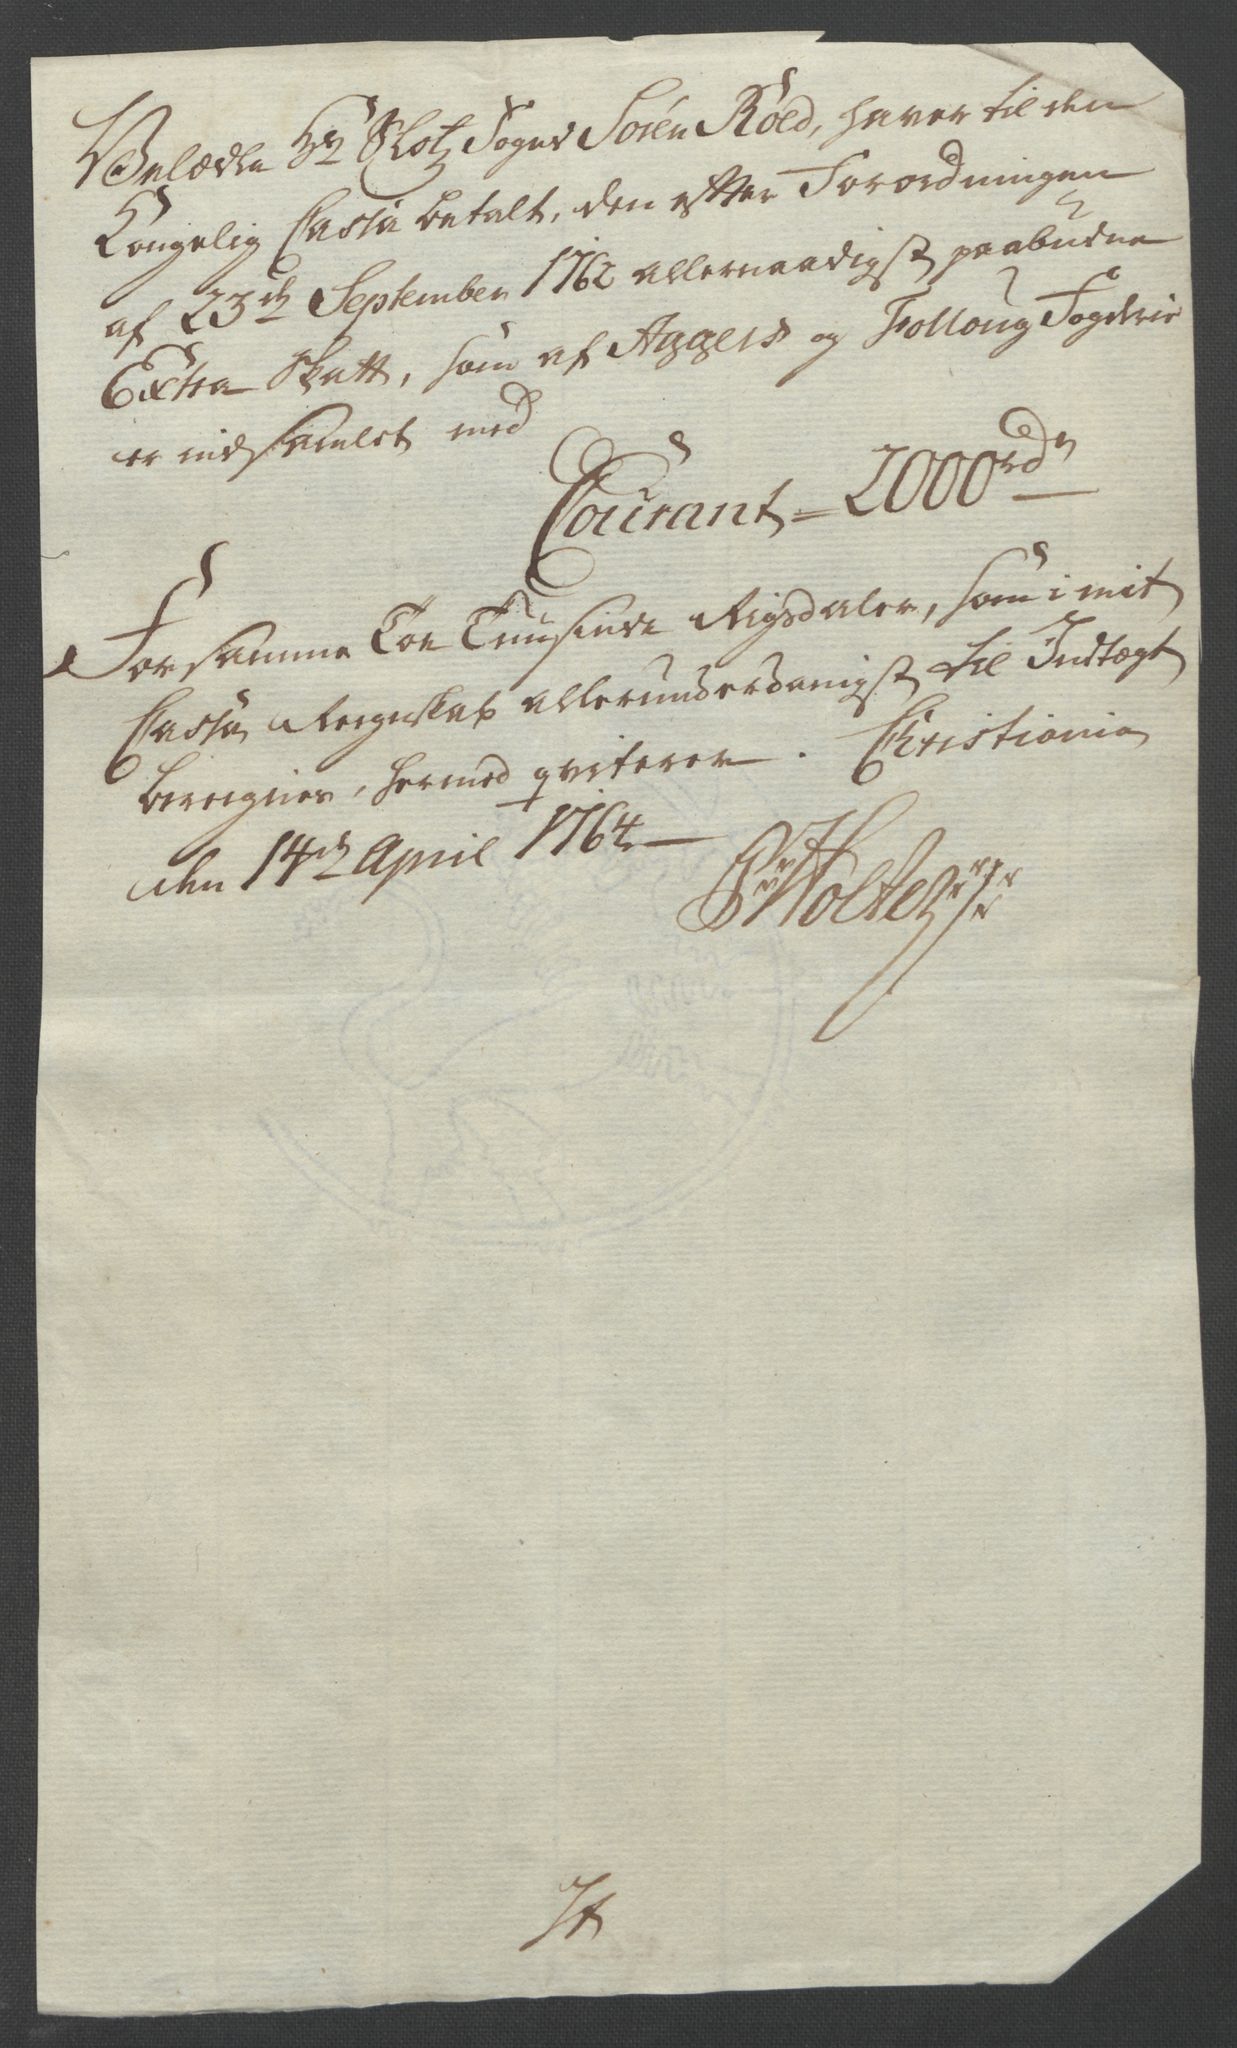 Velædle Hr Slotz Foged Sören Röed, haver til den
Kongelig Cassa betalt, den efter Forordningen
af 23de September 1762 allernaadigst paabudne
Extra Skatt, som af Aggers og Folloug Fogderie
er indsamlet med
Courant = 2000 rdr
For samme Toe Tuusinde Rigsdaler, som i mit
Cassa Regnskab allerunderdanigst til Indtægt
beregnes, hermed qviterer. Christiania
den 14de April 1764
Holte